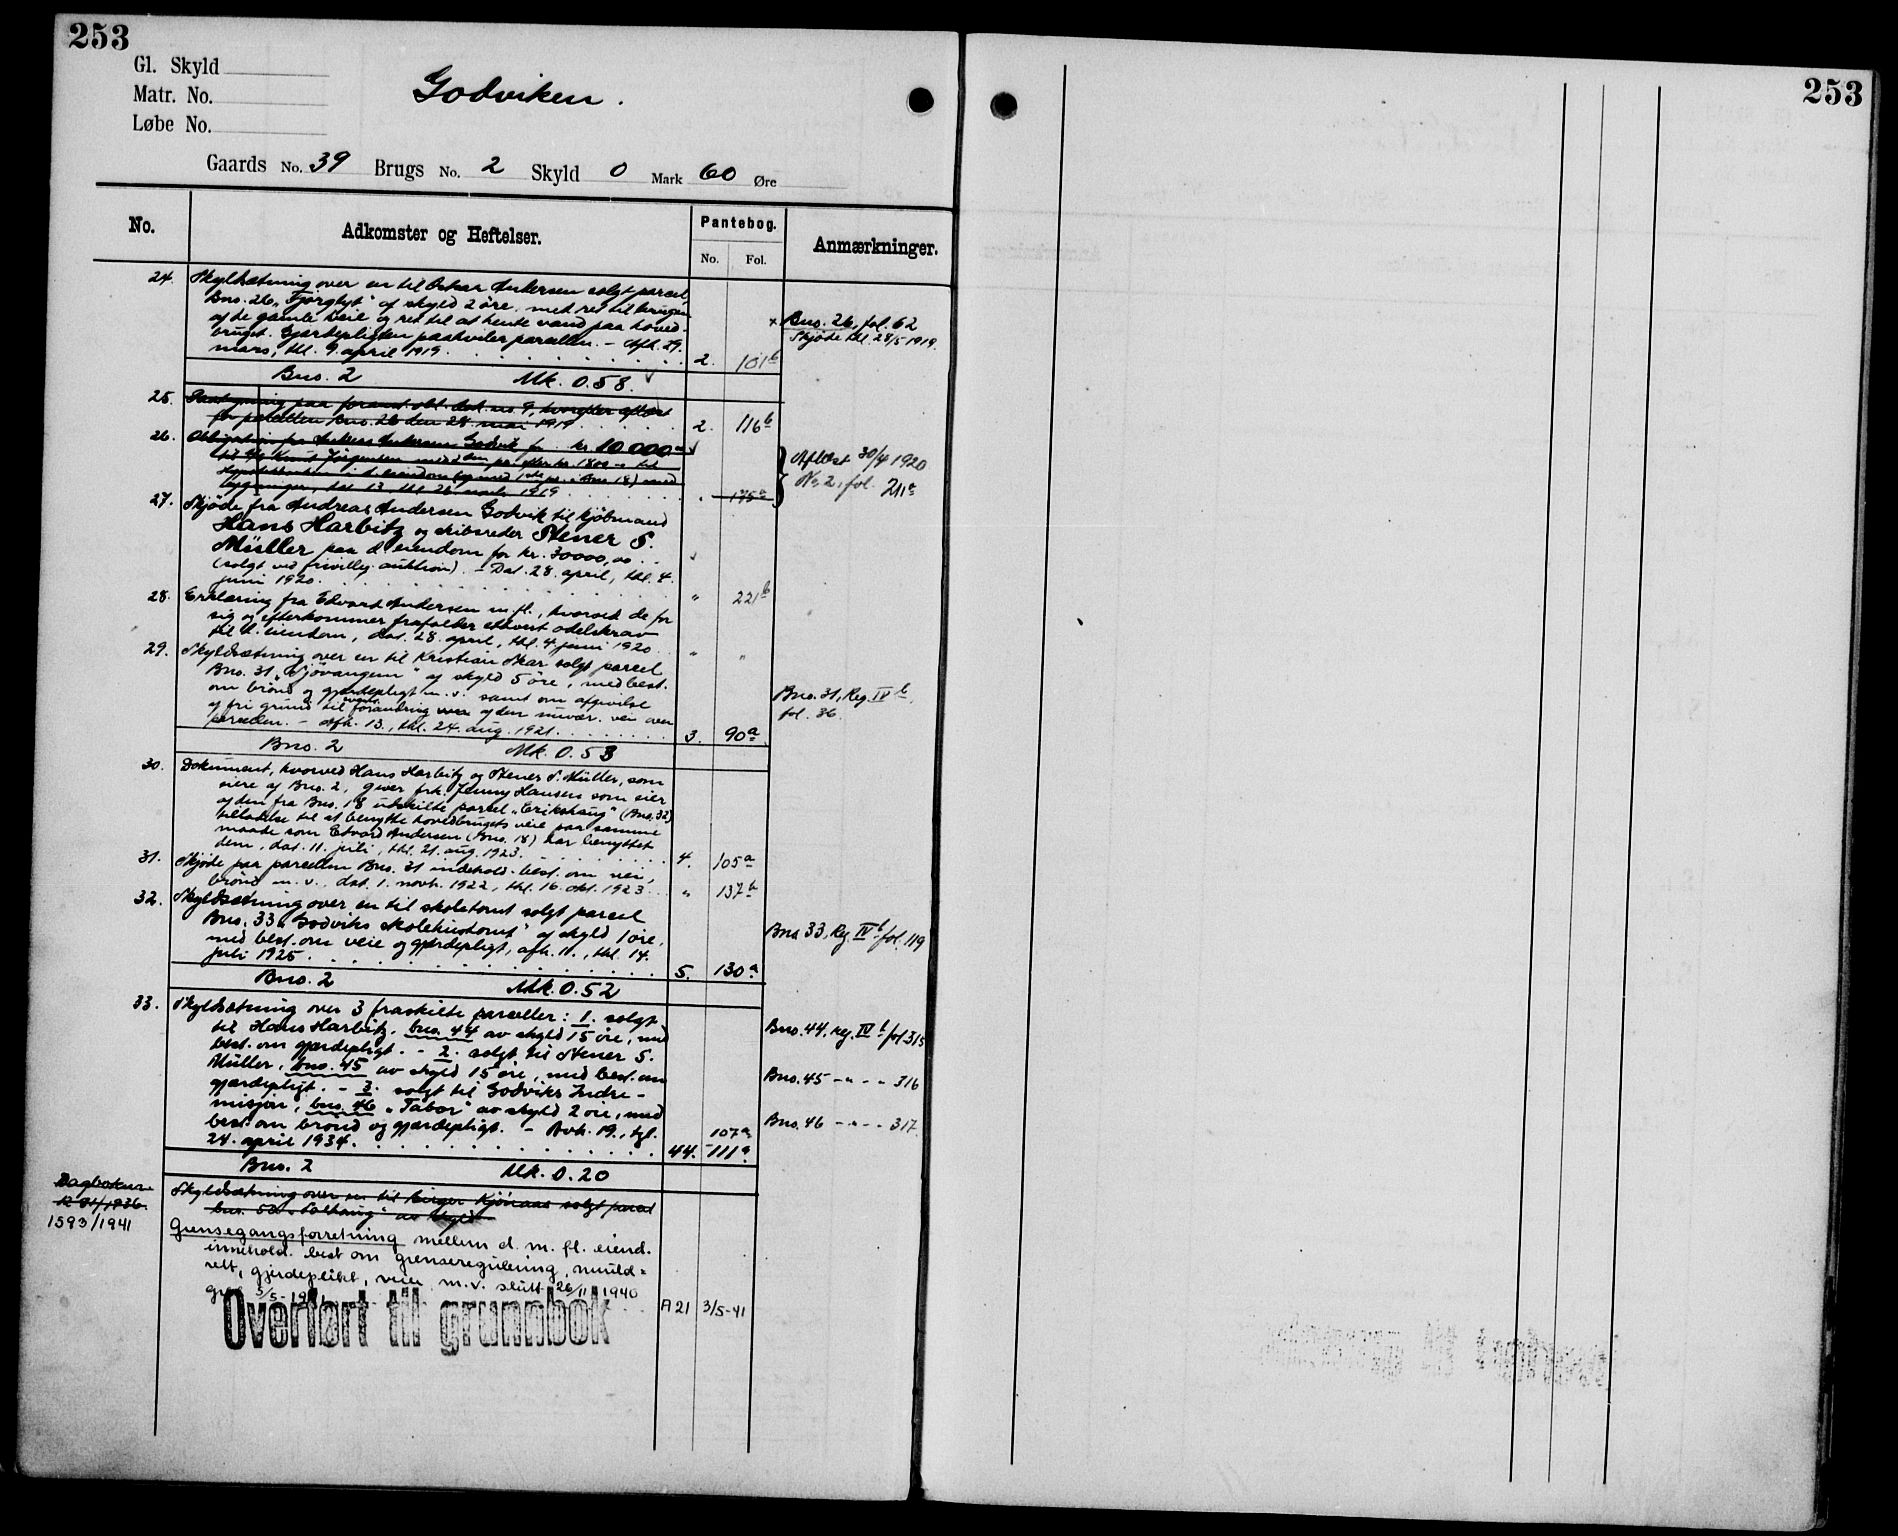 253
Gl. Skyld
Matr. No.
Løbe No.
Godviken.
Gaards No. 39 Brugs No. 2 Skyld 0 Mark 60 Øre
No.
Adkomster og Heftelser.
Pantebog.
No. Fol.
Anmærkninger.
24. Skyldsætning over en til Oskar Andersen solgt parcel
Bno. 26 „Fjorglyt" af skyld 2 øre med ret til brugen
af de gamle veie og ret til at hente vand paa hoved-
bruget. Gjærdepligten paahviler parcellen. - Afh. 29.
mars, thl. 9. april 1919. 2. 101 b
x Bno. 26, fol. 62
Skjøde thl. 28/5 1919.
Bno. 2 Mk. 0.58. ✓
25. paa foranst. obl. no. 9, hvorefter
for parcellen Bno. 26 den 28. mai 1919. 2. 116 b
26. Obligation fra Andreas Andersen Godvik for kr. 10 000
til Knut Jørgensen med pr. efter kr. 1800 til
Hypotekbanken i d. eiendom (og med 1ste pr. i Bno. 18) med
bygninger, dat. 13., thl. 26. 1919. 175 a
Aflæst 30/4 1920
No 2, fol. 211 a
27. Skjøde fra Andreas Andersen Godvik til kjøbmand
Hans Harbitz og skibsreder Stener S.
Müller paa d. eiendom for kr. 30000,00
(solgt ved frivillig auktion). - Dat. 28. april, thl. 4.
juni 1920. " 221 b
28. Erklæring fra Edvard Andersen m. fl., hvorved de for
sig og efterkommer frafalder ethvert odelskrav
til d. eiendom, dat. 28. april, thl. 4. juni 1920. " "
29. Skyldsætning over en til Kristian Skar solgt parcel
Bno. 31 „Sjøvangen" af skyld 5 øre, med best.
om brønd og gjærdepligt m. v. samt om afgivelse
af fri grund til forandring af den nuvær. vei over
parcellen. - Afh. 13., thl. 24. aug. 1921. 3. 90 a
Bno. 31, Reg. IV b
fol. 36.
Bno. 2 Mk. 0.53
30. Dokument, hvorved Hans Harbitz og Stener S. Müller, som
eiere af Bno. 2, giver frk. Jenny Hansen som eier
af den fra Bno. 18 utskilte parcel „Erikshaug" (Bno. 32)
tilladelse til at benytte hovedbrugets veie paa samme
maade som Edvard Andersen (Bno. 18) har benyttet
dem, dat. 11. juli, thl. 21. aug. 1923. 4. 105 a
31. Skjøde paa parcellen Bno. 31 indehold. best. om vei,
brønd m. v., dat. 1. novb. 1922, thl. 16. okt. 1923. " 137 b
32. Skyldsætning over en til skoletomt solgt parcel
Bno. 33 „Godviks skolehustomt" af skyld 1 øre,
med best. om veie og gjærdepligt, afh. 11., thl. 14.
juli 1925. 5. 130 a
Bno 33, Reg. IV b fol. 119
Bno. 2 Mk. 0.52
33. Skyldsætning over 3 fraskilte parceller: 1. solgt
til Hans Harbitz, bno. 44 av skyld 15 øre, med
best. om gjærdepligt. - 2. solgt til Stener S.
Müller, bno. 45 av skyld 15 øre, med best. om
gjærdepligt. - 3. solgt til Godviks Indre-
misjon, bno. 46 „Tabor" av skyld 2 øre, med
best. om brønd og gjærdepligt. - Avh. 19., tgl.
24. april 1934. 44. 107 a - 111 a
Bno. 44. reg. IV b fol 315
Bno. 45 - " - - 316
Bno. 46 - " - - 317.
Bno. 2 Mk. 0.20
Dagboknr.
1593/1941
Skyldsætning over en til Birger Kjönaas solgt parcel
bno. 52 av skyld
Grensegangsforretning mellem d. m. fl. eiend.
innehold. best om grenseregulering,
rett, gjerdeplikt, veier m. v. slutt 26/11 1940
3/5-1941 A 21 3/5-41
Overført til grunnbok
253